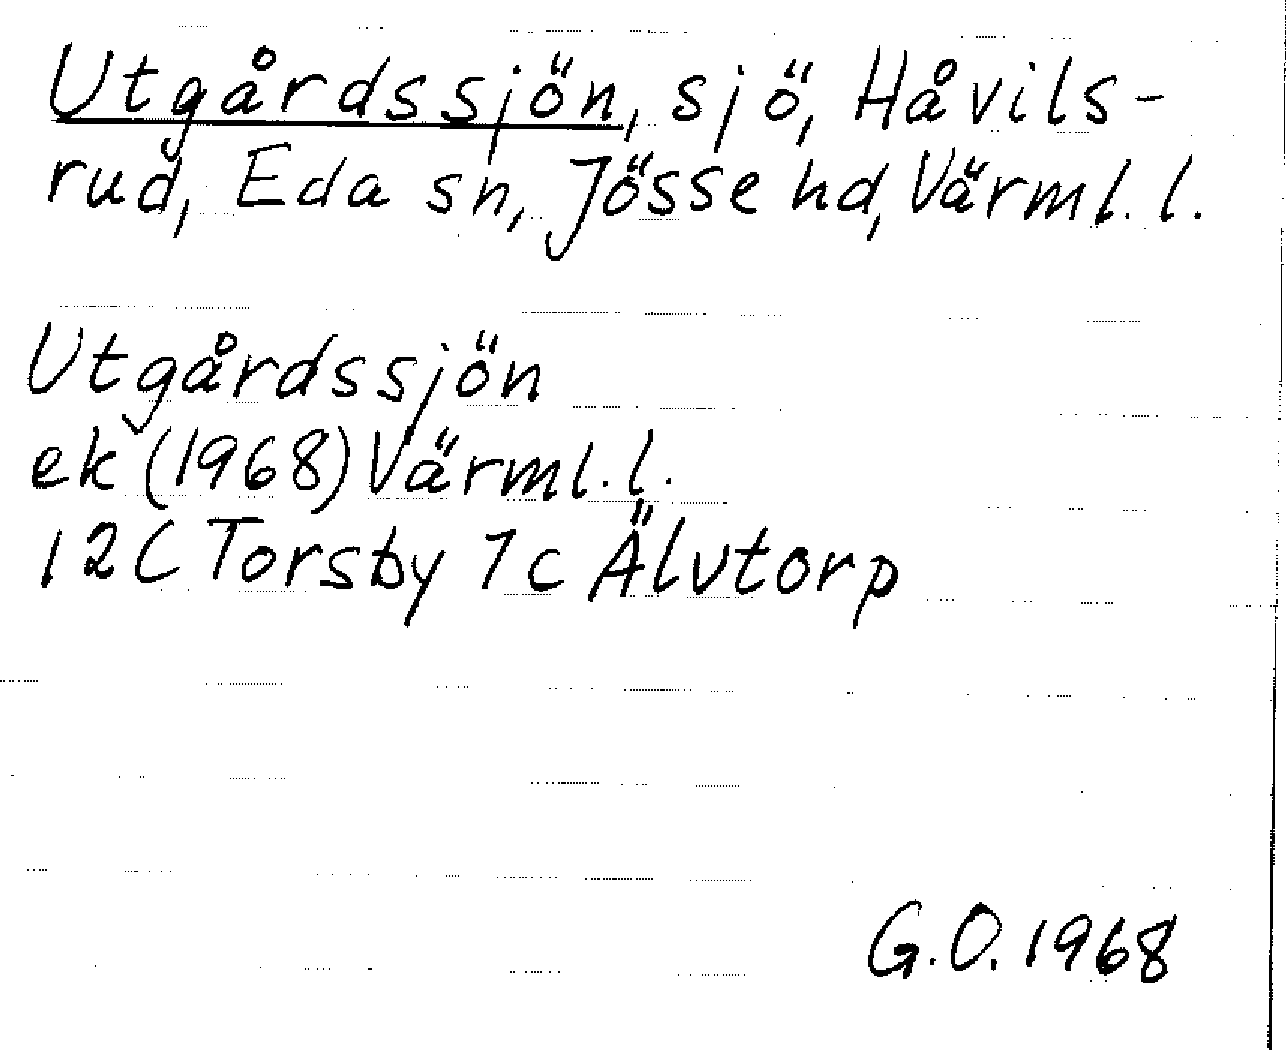 Utgårdssjön, sjö, Håvils-
rud, Eda sn, Jösse hd, Värml. l.
Utgårdssjön
ek (1968) Värml. l.
12C Torsby 1c Älvtorp
G.O. 1968